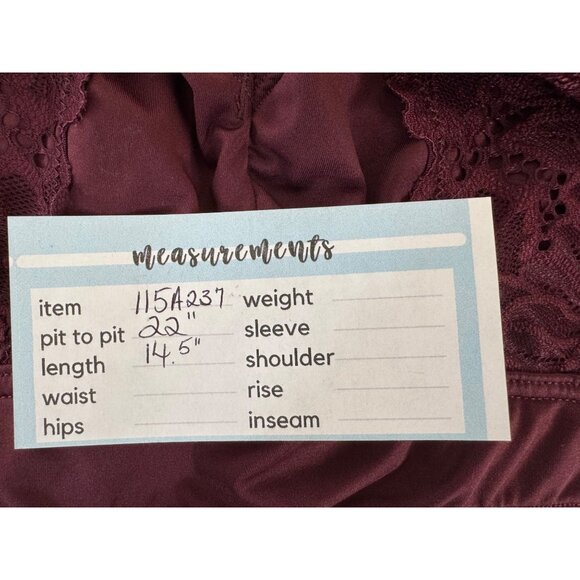 measurements
item 115A237 weight
pit to pit 22" sleeve
length 14.5" shoulder
waist rise
hips inseam